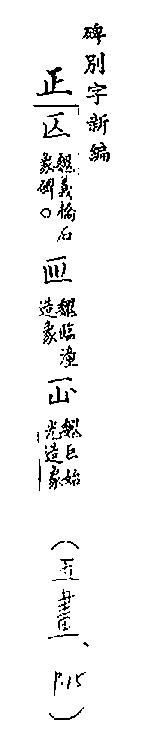 碑別字新編
正
魏義橋石
象碑。
魏臨潼
造象
魏巨始
光造象
(五畫、P.15)